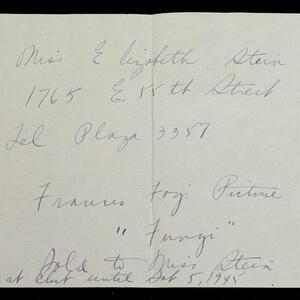 Miss Elizabeth Stein
1765 E. 55th Street
Tel Plaza 3357
Frances Foy's Picture
"Fungi"
Sold to Miss Stein
at club until 5, 1945.